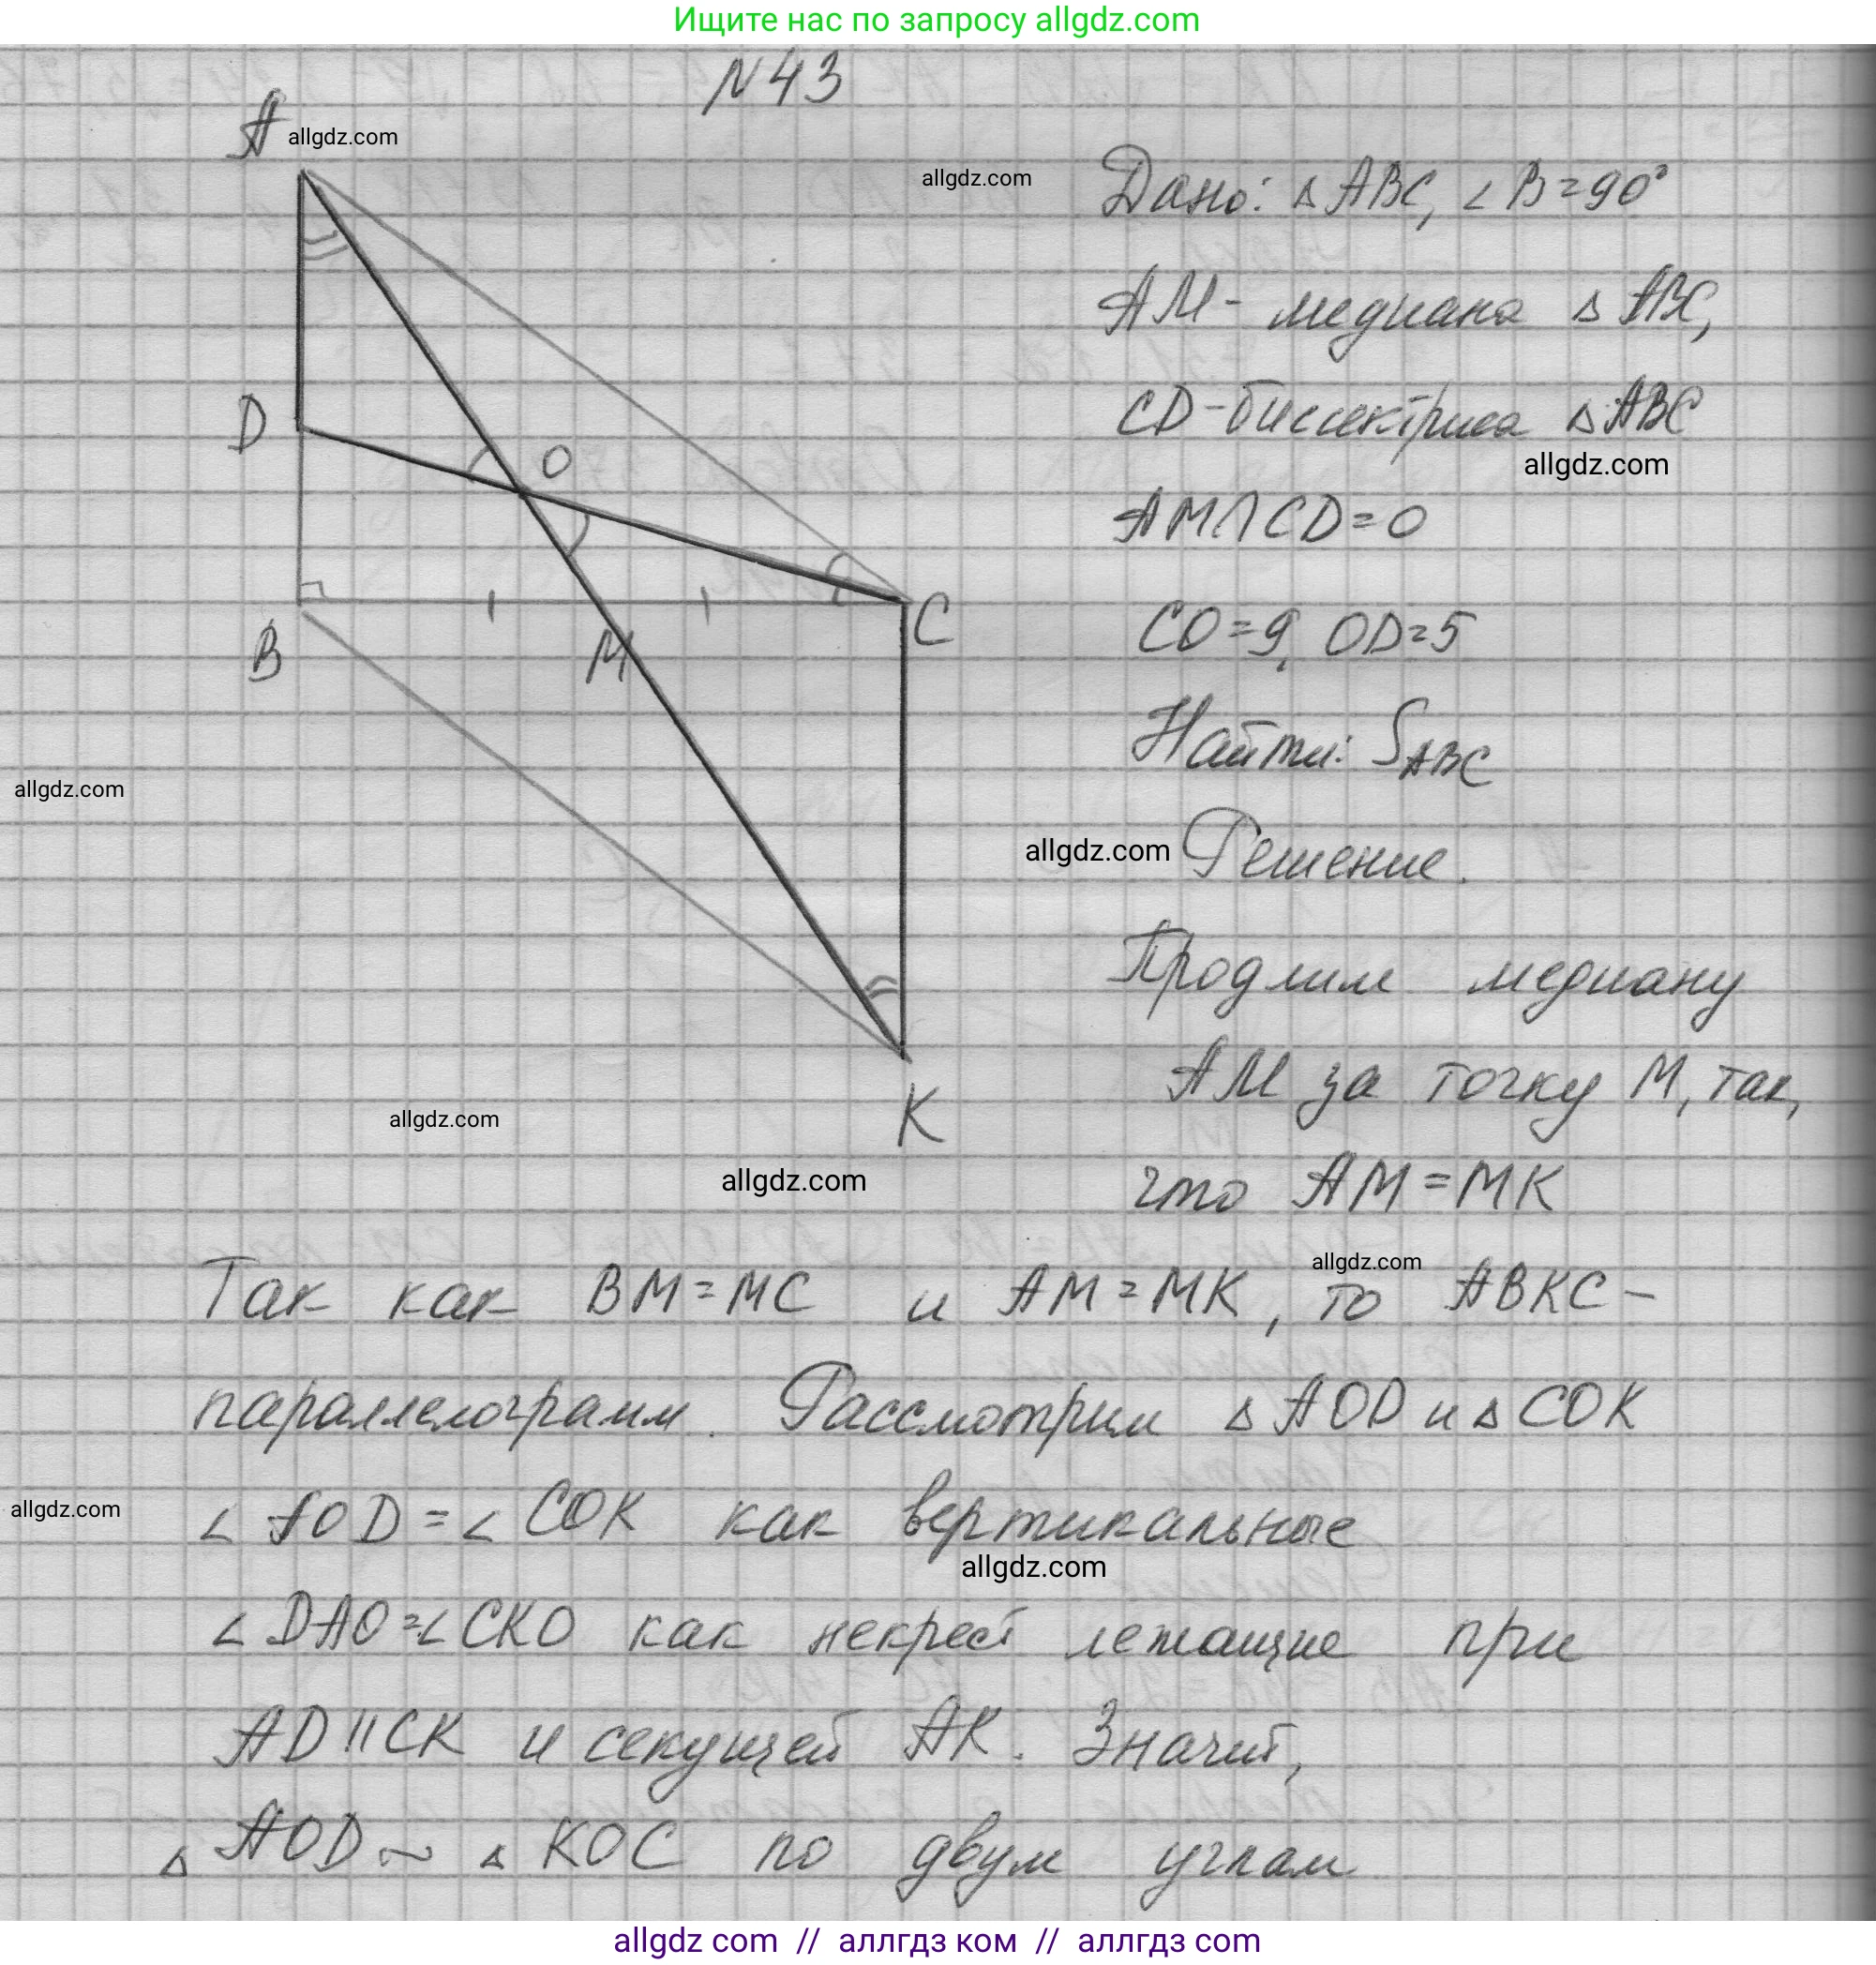 Ищите нас по запросу allgdz.com
N43
A
allgdz.com
allgdz.com
Дано: △ ABC, ∠ B=90°
AM- медиана △ ABC,
D
CD-биссектриса △ ABC
O
allgdz.com
AM∩CD=O
B
M
C
CO=9, OD=5
Найти: SABC
allgdz.com
allgdz.com
Решение.
Продлим медиану
AM за точку M, так,
K
allgdz.com
allgdz.com
что AM=MK
allgdz.com
Так как BM=MC и AM=MK, то ABKC-
параллелограмм. Рассмотрим △ AOD и △ COK
allgdz.com
∠ AOD=∠ COK как вертикальные
allgdz.com
∠ DAO=∠ CKO как некрест лежащие при
AD||CK и секущей AK. Значит,
△ AOD ~ △ KOC по двум углам
allgdz com // аллгдз ком // аллгдз com